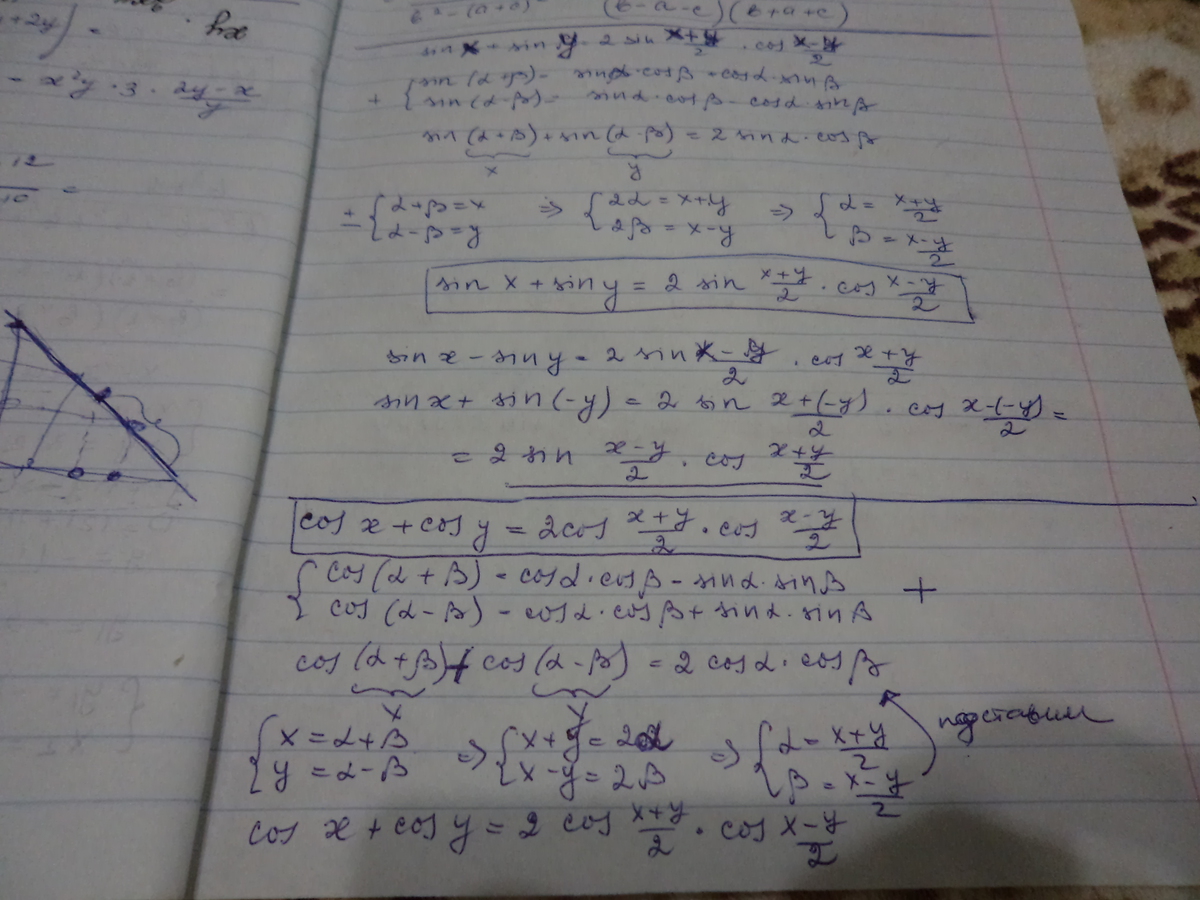 +2y) = · hx
= x²y · 3 · (2y-x)/y
12/10 =
b²-(a+c)² (b-a-c)(b+a+c)
sin x + sin y = 2 sin (x+y)/2 · cos (x-y)/2
+ { sin(α+β) = sinα·cosβ + cosα·sinβ
sin(α-β) = sinα·cosβ - cosα·sinβ
sin(α+β) + sin(α-β) = 2 sinα·cosβ
x y
± { α+β=x ⇒ { 2α = x+y ⇒ { α = (x+y)/2
α-β=y 2β = x-y β = (x-y)/2
sin x + sin y = 2 sin (x+y)/2 · cos (x-y)/2
sin x - sin y = 2 sin (x-y)/2 · cos (x+y)/2
sin x + sin(-y) = 2 sin (x+(-y))/2 · cos (x-(-y))/2 =
= 2 sin (x-y)/2 · cos (x+y)/2
cos x + cos y = 2cos (x+y)/2 · cos (x-y)/2
{ cos(α+β) = cosα·cosβ - sinα·sinβ +
cos(α-β) = cosα·cosβ + sinα·sinβ
cos(α+β) + cos(α-β) = 2 cosα·cosβ
x y
подставим
{ x = α+β ⇒ { x+y = 2α ⇒ { α = (x+y)/2
y = α-β x-y = 2β β = (x-y)/2
cos x + cos y = 2 cos (x+y)/2 · cos (x-y)/2